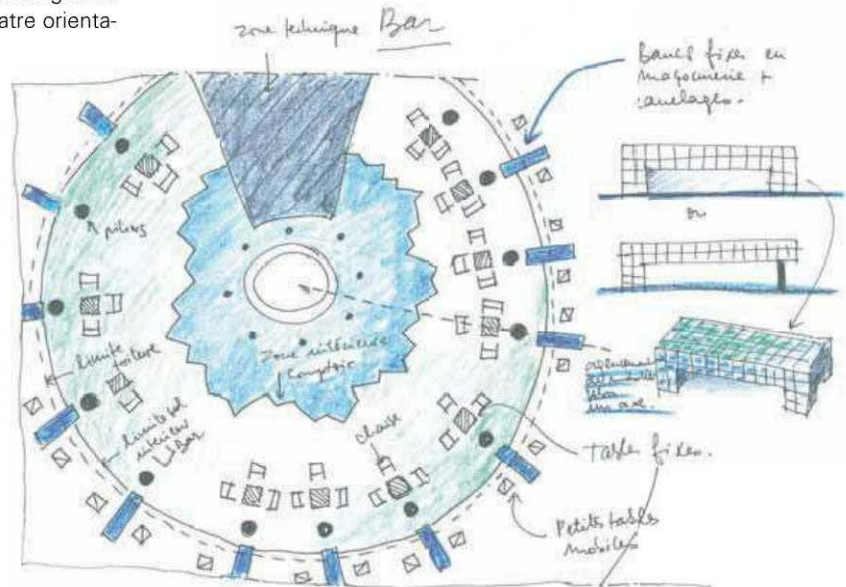 atre orienta-
zone technique Bar
Bancs fixes en
maçonnerie +
carrelages.
ou
piliers
limite
toiture
limite sol
intérieur
Bar
zone intérieure
Comptoir
chaise
un axe.
Tables fixes.
Petites tables
mobiles